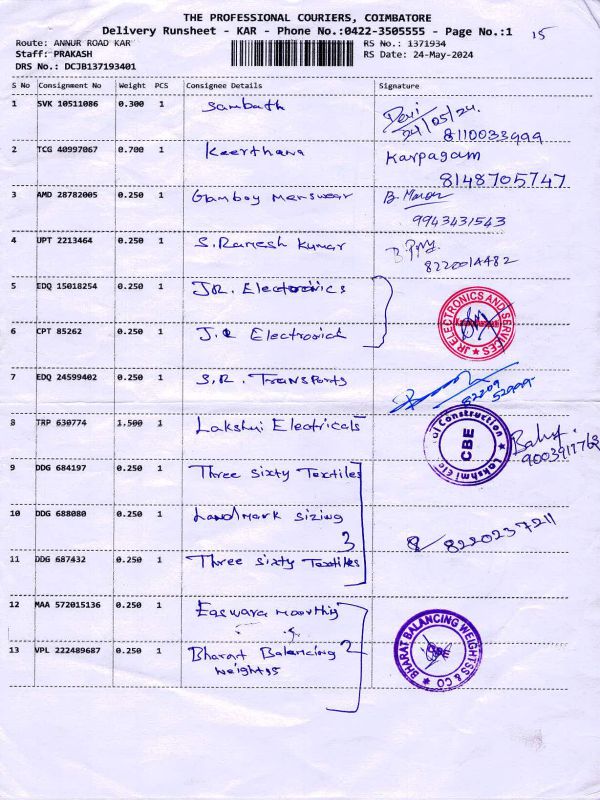 THE PROFESSIONAL COURIERS, COIMBATORE
Delivery Runsheet - KAR - Phone No.:0422-3505555 - Page No.:1 15
Route: ANNUR ROAD KAR RS No.: 1371934
Staff: PRAKASH RS Date: 24-May-2024
DRS No.: DCJB137193401
S No Consignment No Weight PCS Consignee Details Signature
1 SVK 10511086 0.300 1 Sambath Devi
24/05/24.
8110033999
2 TCG 40997067 0.700 1 Keerthana Karpagam
8148705747
3 AMD 28782005 0.250 1 Gamboy Menswear B.
9943431543
4 UPT 2213464 0.250 1 S. Ramesh Kumar
8220014482
5 EDQ 15018254 0.250 1 J.R. Electronics
JR ELECTRONICS AND SERVICES
6 CPT 85262 0.250 1 J.R Electronics
7 EDQ 24599402 0.250 1 S.R. Transports
82209
52999
8 TRP 630774 1.500 1 Lakshmi Electricals
CBE
9003917768
9 DDG 684197 0.250 1 Three Sixty Textiles
10 DDG 688080 0.250 1 Landmark Sizing
3 8220237211
11 DDG 687432 0.250 1 Three Sixty Textiles
12 MAA 572015136 0.250 1 Easwara moorthy
BHARAT BALANCING WEIGHTSS & CO
CBE
13 VPL 222489687 0.250 1 Bharat Balancing 2
Weightss